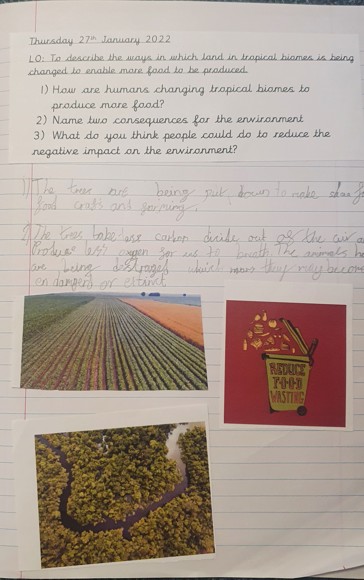 Thursday 27th January 2022
LO: To describe the ways in which land in tropical biomes is being
changed to enable more food to be produced.
1) How are humans changing tropical biomes to
produce more food?
2) Name two consequences for the environment
3) What do you think people could do to reduce the
negative impact on the environment?
1) The tree are being put down to make
food crafs and farming.
2) The trees take are carbon out of the air
Produce less oxgen for us to breath. The animals
are being destroyed they may become
endangerd or extinct.
REDUCE
FOOD
WASTING